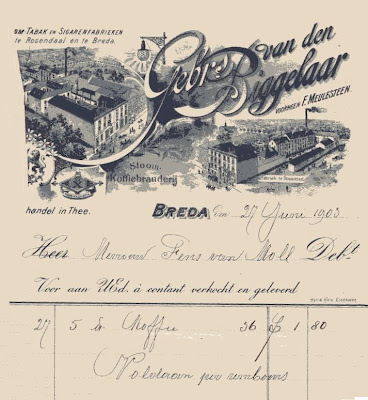 OM-TABAK EN SIGARENFABRIEKEN
te Rosendaal en te Breda.
Gebrs van den
Biggelaar
VOORHEEN F. MEULESTEEN.
Stoom
Koffiebranderij
Fabriek te Rosendaal
handel in Thee.
BREDA den 27 Juni 1903
Heer Mevrouw Fens van Moll Debt
Voor aan UEd. à contant verkocht en geleverd
27 5 Koffie 36 1 80
per rembours